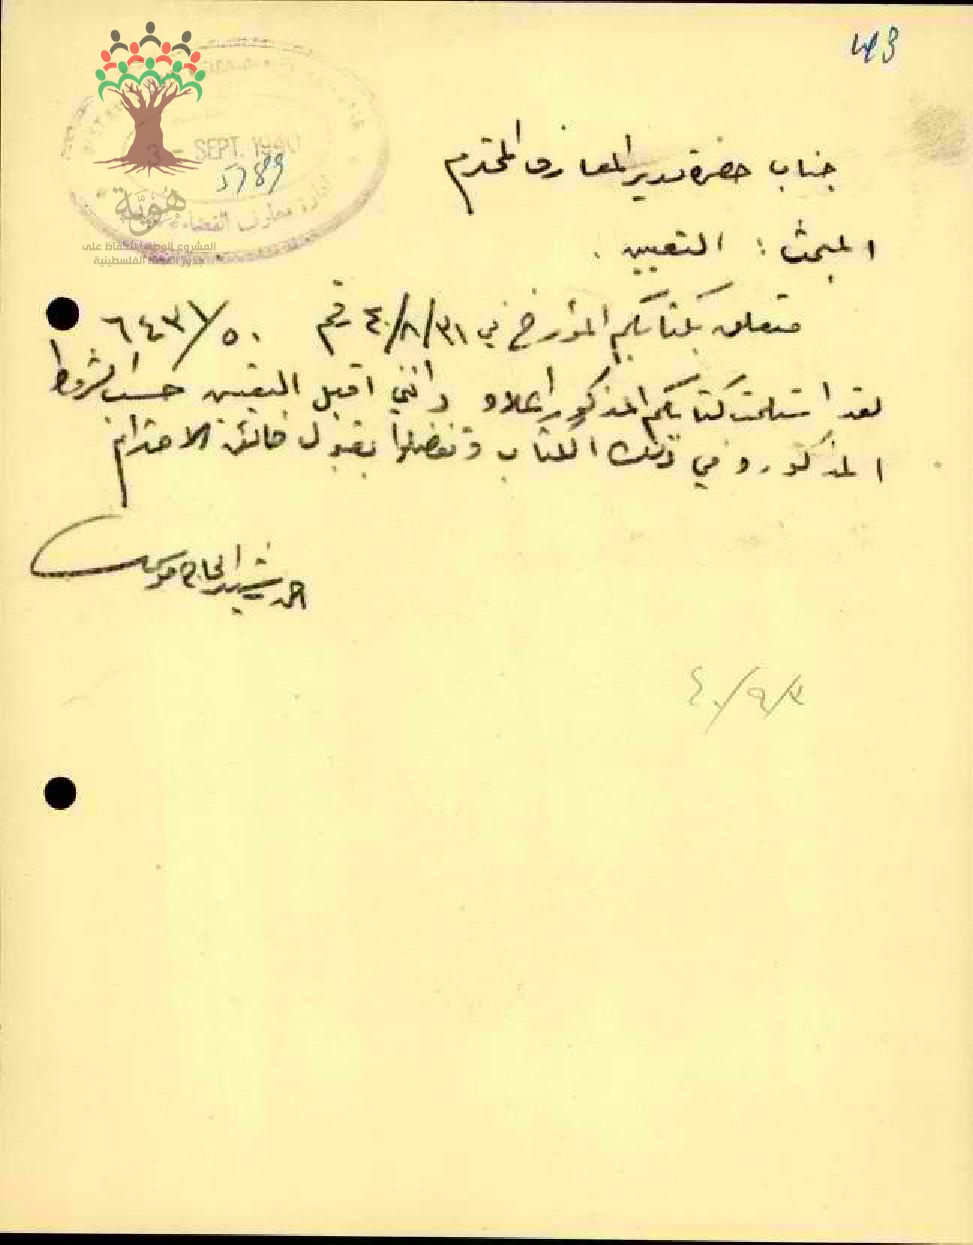 43
3 - SEPT. 1940
5789
إدارة معارف القضاء
هُوِيَّة
المشروع الوطني للحفاظ على
جذور العائلة الفلسطينية
جناب حضرة مدير المعارف المحترم
المبحث : التعيين .
متعلق بكتابكم المؤرخ في ٣١/٨/٤٠ رقم ٥٠/٦٤٣١
لقد استلمت كتابكم المذكور اعلاه وانني اقبل التعيين حسب الشروط
المذكوره في ذلك الكتاب وتفضلوا بقبول فائق الاحترام
احمد رشيد الحاج موسى
٤٠/٩/٣